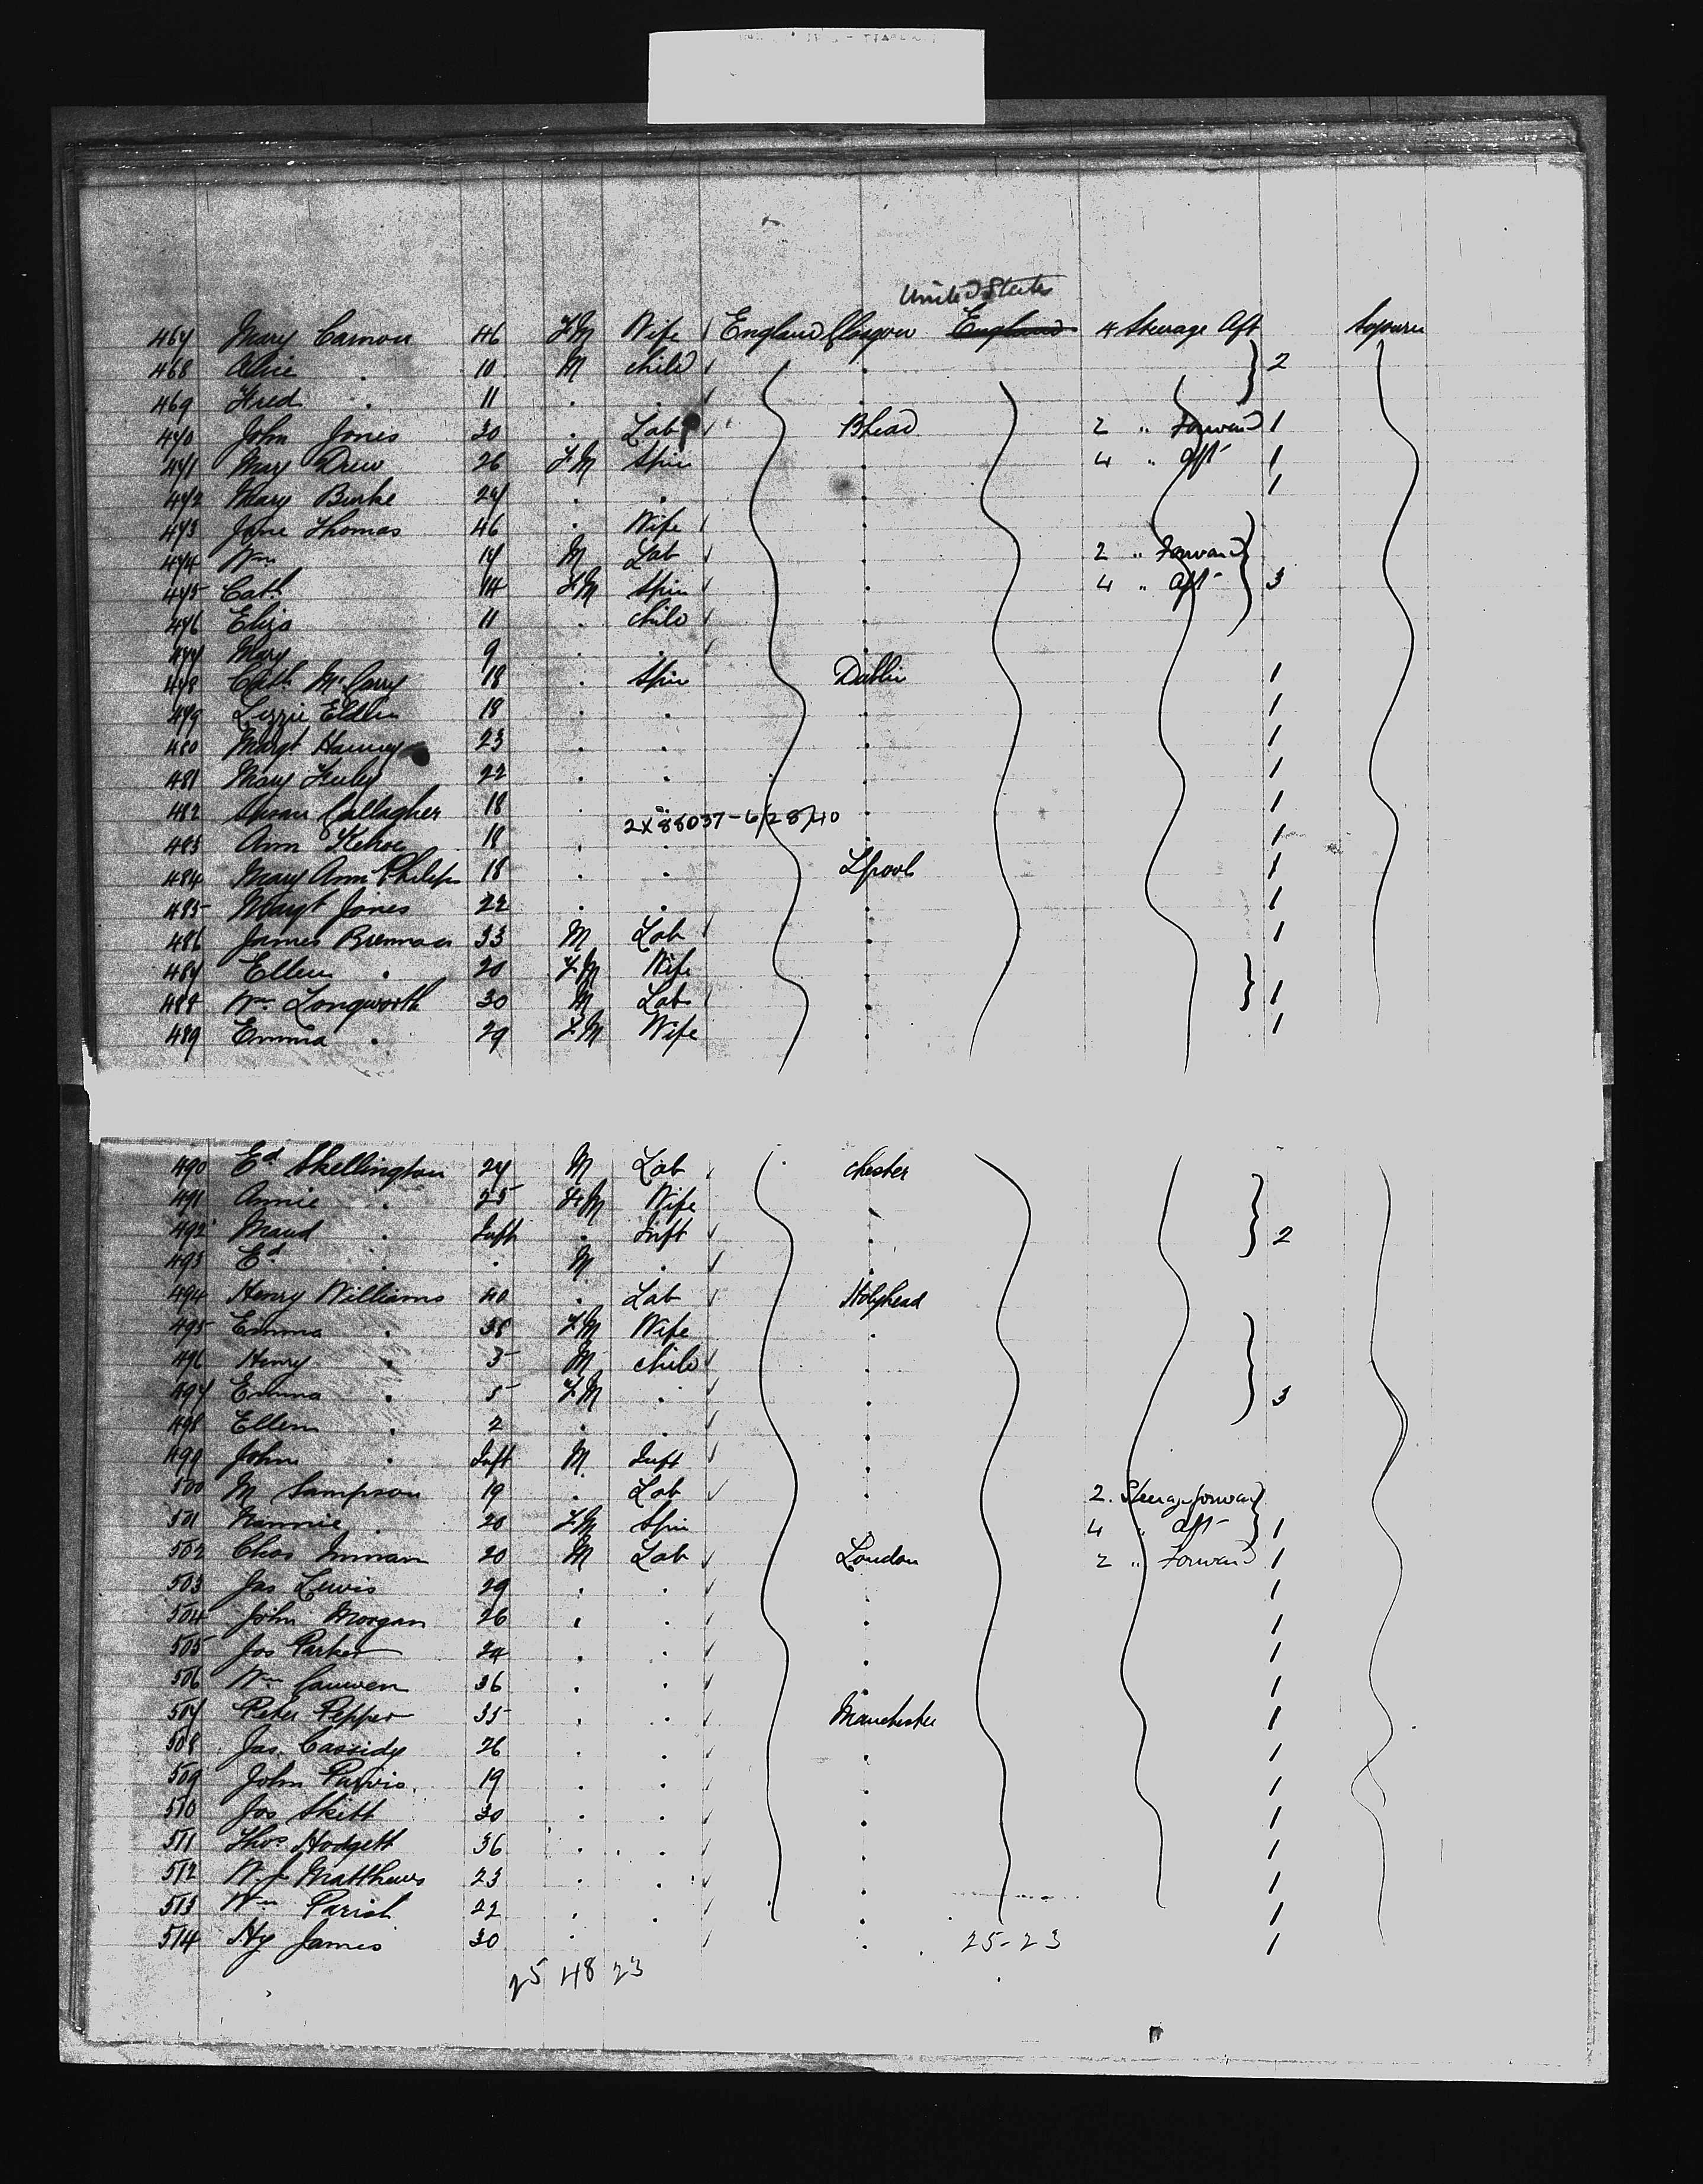 United States
467 Mary Cannon 46 FM Wife England Glasgow England 4 Steerage Aft Sojourn
468 Alice . 10 M child . 2
469 Fred . 11 . . .
470 John Jones 30 . Lab Bhead 2 " Forward 1
471 Mary Drew 26 FM Spin . 4 " aft 1
472 Mary Burke 24 . . . 1
473 Jane Thomas 46 . Wife .
474 Wm 17 M Lab . 2 " Forward
475 Cath 14 FM Spin . 4 " aft 3
476 Eliza 11 . child .
477 Mary 9 . . .
478 Cath. 18 . Spin Dublin 1
479 Lizzie Elden 18 . . . 1
480 Margt 23 . . . 1
481 Mary 22 . . . 1
482 Susan Gallagher 18 . . . 1
2X88037-6/28/40
483 Ann Kehoe 18 . . . 1
484 Mary Ann Philips 18 . . Lpool 1
485 Margt Jones 22 . . . 1
486 James Brennan 33 M Lab . 1
487 Ellen . 20 FM Wife .
488 Wm Longworth 30 M Lab . 1
489 Emma . 29 FM Wife . 1
490 Ed Skellington 27 M Lab Chester
491 Annie . 25 FM Wife .
492 Maud . Inft . Inft . 2
493 Ed . . M . .
494 Henry Williams 40 . Lab Holyhead
495 Emma . 38 FM Wife .
496 Henry . 5 M child .
497 Emma . 5 FM . . 3
498 Ellen . 2 . . .
499 John . Inft M Inft .
500 M Sampson 19 . Lab . 2. Steerage forward
501 Nannie . 20 FM Spin . 4 " aft 1
502 Chas Inman 20 M Lab London 2 " Forward 1
503 Jas Lewis 29 . . . 1
504 John Morgan 26 . . . 1
505 Jos Parker 24 . . . 1
506 Wm 36 . . . 1
507 Peter Pepper 35 . . Manchester 1
508 Jas. Cassidy 26 . . . 1
509 John Purvis 19 . . . 1
510 Jos Skitt 30 . . . 1
511 Thos. Hodgett 36 . . . 1
512 W. J. Matthews 23 . . . 1
513 Wm Parish 22 . . . 1
514 Hy James 30 . . . 25-23 1
25 48 23